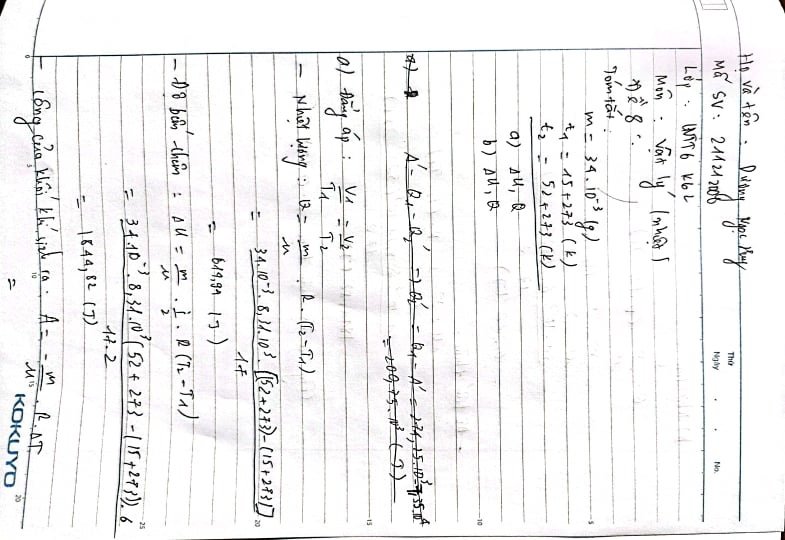 Họ và tên : Dương Ngọc Huy
Thứ
Mã SV : 211212006
Ngày . . No.
Lớp :
Môn : Vật lý (nhiệt)
Đề 8 :
Tóm tắt :
m = 34.10⁻³ (g)
t₁ = 15+273 (K)
t₂ = 52+273 (K)
a) ΔU, Q
b) ΔU, Q
a) A' = Q₁ - Q₂' → Q₂' = Q₁ - A' =
= 200,75.10³ (J)
a) Đẳng áp : V₁/T₁ = V₂/T₂
- Nhiệt lượng : Q = m/μ . R.(T₂-T₁)
= 34.10⁻³.8,31.10³.[(52+273)-(15+273)] / 17
= 614,94 (J)
- Độ biến thiên : ΔU = m/μ . i/2 . R(T₂-T₁)
= 34.10⁻³.8,31.10³(52+273-(15+273)).6 / 17.2
= 1844,82 (J)
- Công của khối khí sinh ra : A = - m/μ . R.ΔT
=
5
10
15
20
25
0 5 10 15 20
KOKUYO